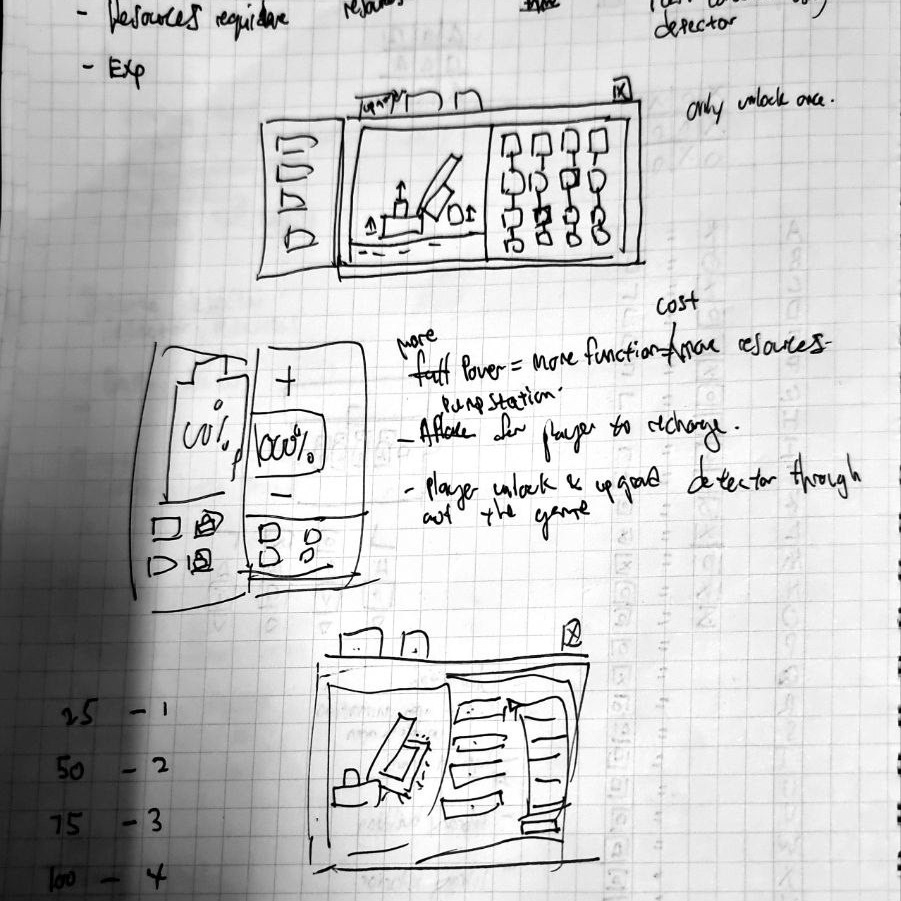 - Resources require
detector
- Exp
upgrade
X
only unlock once.
cost
more
full Power = more function = more resources.
pump station.
- A place for player to recharge.
- Player unlock & upgrad detector through
out the game
+
100%
-
X
25 - 1
50 - 2
75 - 3
100 - 4